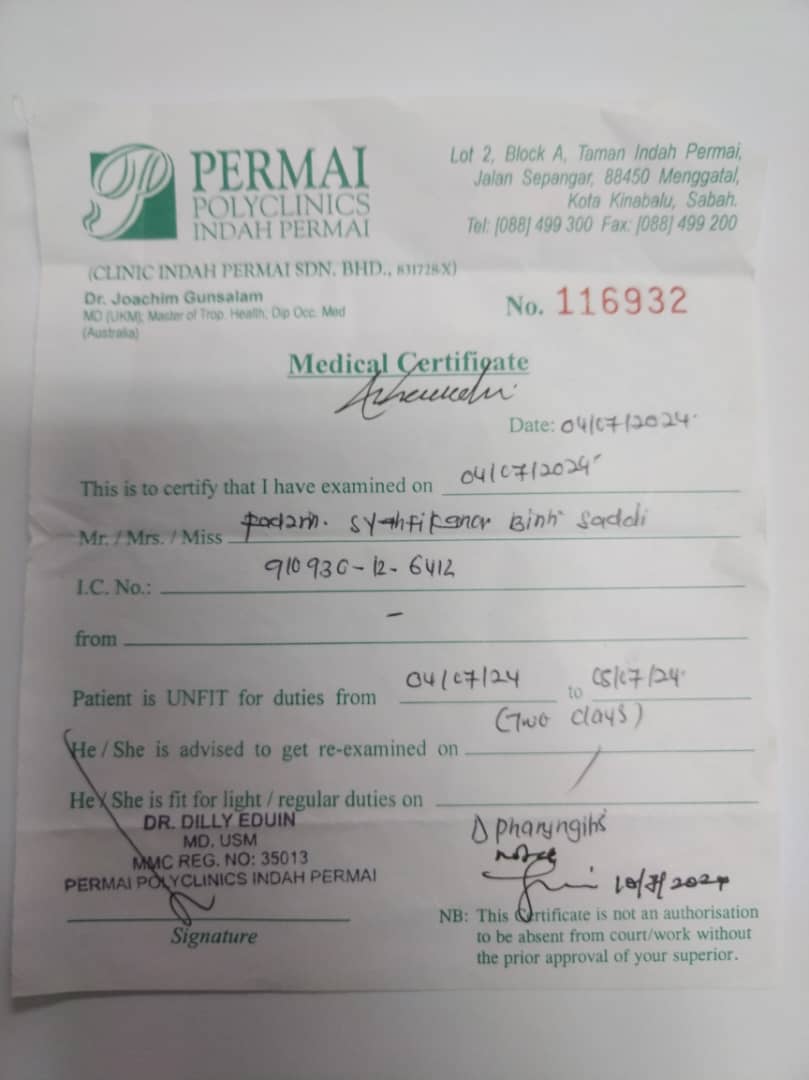 PERMAI
POLYCLINICS
INDAH PERMAI
Lot 2, Block A, Taman Indah Permai,
Jalan Sepangar, 88450 Menggatal,
Kota Kinabalu, Sabah.
Tel: [088] 499 300 Fax: [088] 499 200
(CLINIC INDAH PERMAI SDN. BHD., 831728-X)
Dr. Joachim Gunsalam
MD (UKM); Master of Trop. Health, Dip Occ. Med
(Australia)
No. 116932
Medical Certificate
Date: 04/07/2024
This is to certify that I have examined on 04/07/2024
Mr. / Mrs. / Miss Binti Saddi
I.C. No.: 910930-12-6412
from -
Patient is UNFIT for duties from 04/07/24 to 05/07/24
(Two days)
He / She is advised to get re-examined on
He / She is fit for light / regular duties on
DR. DILLY EDUIN
MD. USM
MMC REG. NO: 35013
PERMAI POLYCLINICS INDAH PERMAI
Signature
Pharyngitis
Noted
10/7/2024
NB: This Certificate is not an authorisation
to be absent from court/work without
the prior approval of your superior.